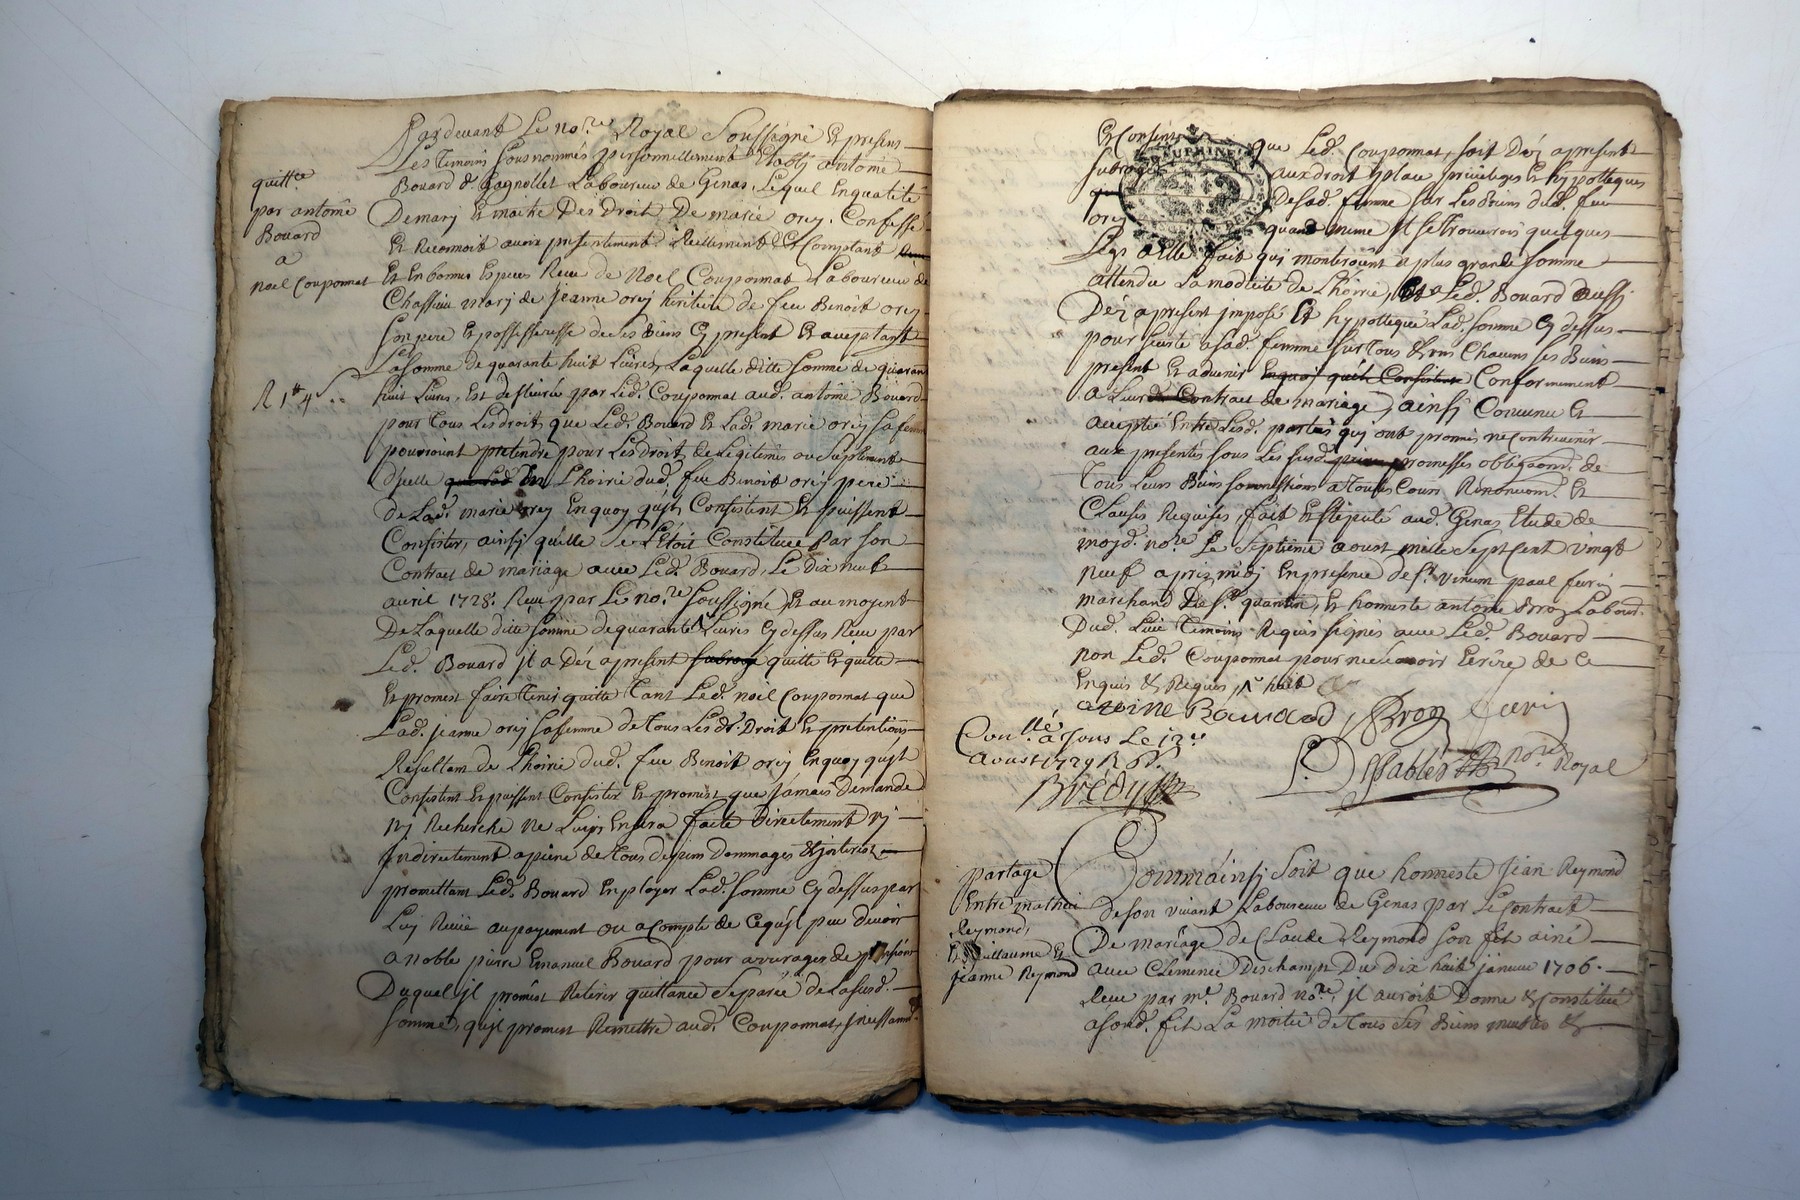 quitt.ce
par antoine
Bouard
a
noel Couponnat
R 1# 4s
Pardevant Le no.re Royal Soussigné Et presens
Les Temoins sousnommés personnellement Etably antoine
Bouard d. Gagnollet Laboureur de Genas, Lequel En qualité
De mary Et maitre Des Droit De marie orcy. Confesse
Et Reconnoit avoir presentement Reellement Et Comptant
Et En bonnes Especes Receu de Noel Couponnat Laboureur de
Chassieu mary de jeanne orcy heritiere de feu Benoit orcy
son pere Et possesseresse de ses Biens Cy present Et acceptant
La somme De quarante huit Livres, Laquelle ditte somme de quaran
huit Livres, Est deslivrée par Led. Couponnat aud. antoine Bouard
pour Tous Les droits que Led. Bouard Et Lad. marie orcy sa femme
pourroient pretendre pour Les Droit de Legitimes ou suplement
d'icelle que Lad. En L'hoirie dud. feu Benoit orcy pere
de Lad. marie orcy En quoy qu'ils Consistent Et puissent
Consister, ainsy qu'elle se L'étoit Constituée par son
Contract de mariage avec Led. Bouard, Le dix neuf
avril 1728. Receu par Le no.re soussigné, Et au moyent
De Laquelle ditte somme de quarante Livres Cy dessus Receu par
Led. Bouard il a Déz apresent subroge quitté Et quitte
Et promest faire Tenir quitte Tant Led. noel Couponnat que
Lad. jeanne orcy sa femme de Tous Lesd. Droit Et pretentions
Resultant de L'hoirie dud. feu Benoit orcy En quoy qu'ils
Consistent Et puissent Consister Et promest que jamais demande
ny Recherche ne Luy En sera faite Directement ny
Indirectement a peine de Tous depens Dommages & Interest
promettant Led. Bouard Employer Lad. somme Cy dessus par
Luy Receüe au payement ou a compte de Ce qu'il peu devoir
a noble pierre Emanuel Bouard pour arrerages de pension
Duquel il promest Retirer quittance separée de La susd.
somme, qu'il promest Remettre aud. Couponnat, incessamt
Et Consent que Led. Couponnat, soit Déz apresent
subrogé aux droit place privileges Et hypotteques
De sad. femme sur Les Biens dud. feu
orcy quand meme Il se trouveroit quelques
Legs a Elle fait qui monteroient a plus grande somme
attendu La modicité de L'hoirie, Led. Bouard aussy
Déz apresent imposé Et hypotteque Lad. somme Cy dessus
pour seureté a sad. femme sur Tous & uns Chacuns ses Biens
present Et advenir En quoy qu'ils Consistent Conformement
a Leur Contract de mariage, ainsy Convenu Et
accepté Entre Lesd. parties qui ont promis ne Contrevenir
aux presentes sous Les susd. promesses obligaons. de
Tous Leurs Biens soumissions a Toutes Cours Renonciaons. Et
Clauses Requises, fait Et stipulé aud. Genas Etude de
moyd. no.re Le septieme aoust mille sept Cent vingt
neuf apriz midy En presence de s.r vincent paul furin
marchand De S.t quantin, Et honneste antoine Broz Labour.
Dud. Lieu Temoins Requis signés avec Led. Bouard
non Led. Couponnat pour ne sçavoir Ecrire de Ce
Enquis Et Requis
antoine Bouuard Broz furin
Con.llé a Jons Le 12.e
Aoust 1729 R
Brédy
Despables no.re Royal
DAUPHINE
partage
Entre mathieu
Reymond,
Et Guillaume Et
jeanne Reymond
Comme ainsy soit que honneste Jean Reymond
de son vivant Laboureur de Genas par Le Contract
De mariage de Claude Reymond son fils ainé
avec Clemence Deschamps Du dix huit janvier 1706.
Receu par m.e Bouard no.re, il auroit Donné & Constitué
a sond. fils La moitié de Tous ses Biens meubles &